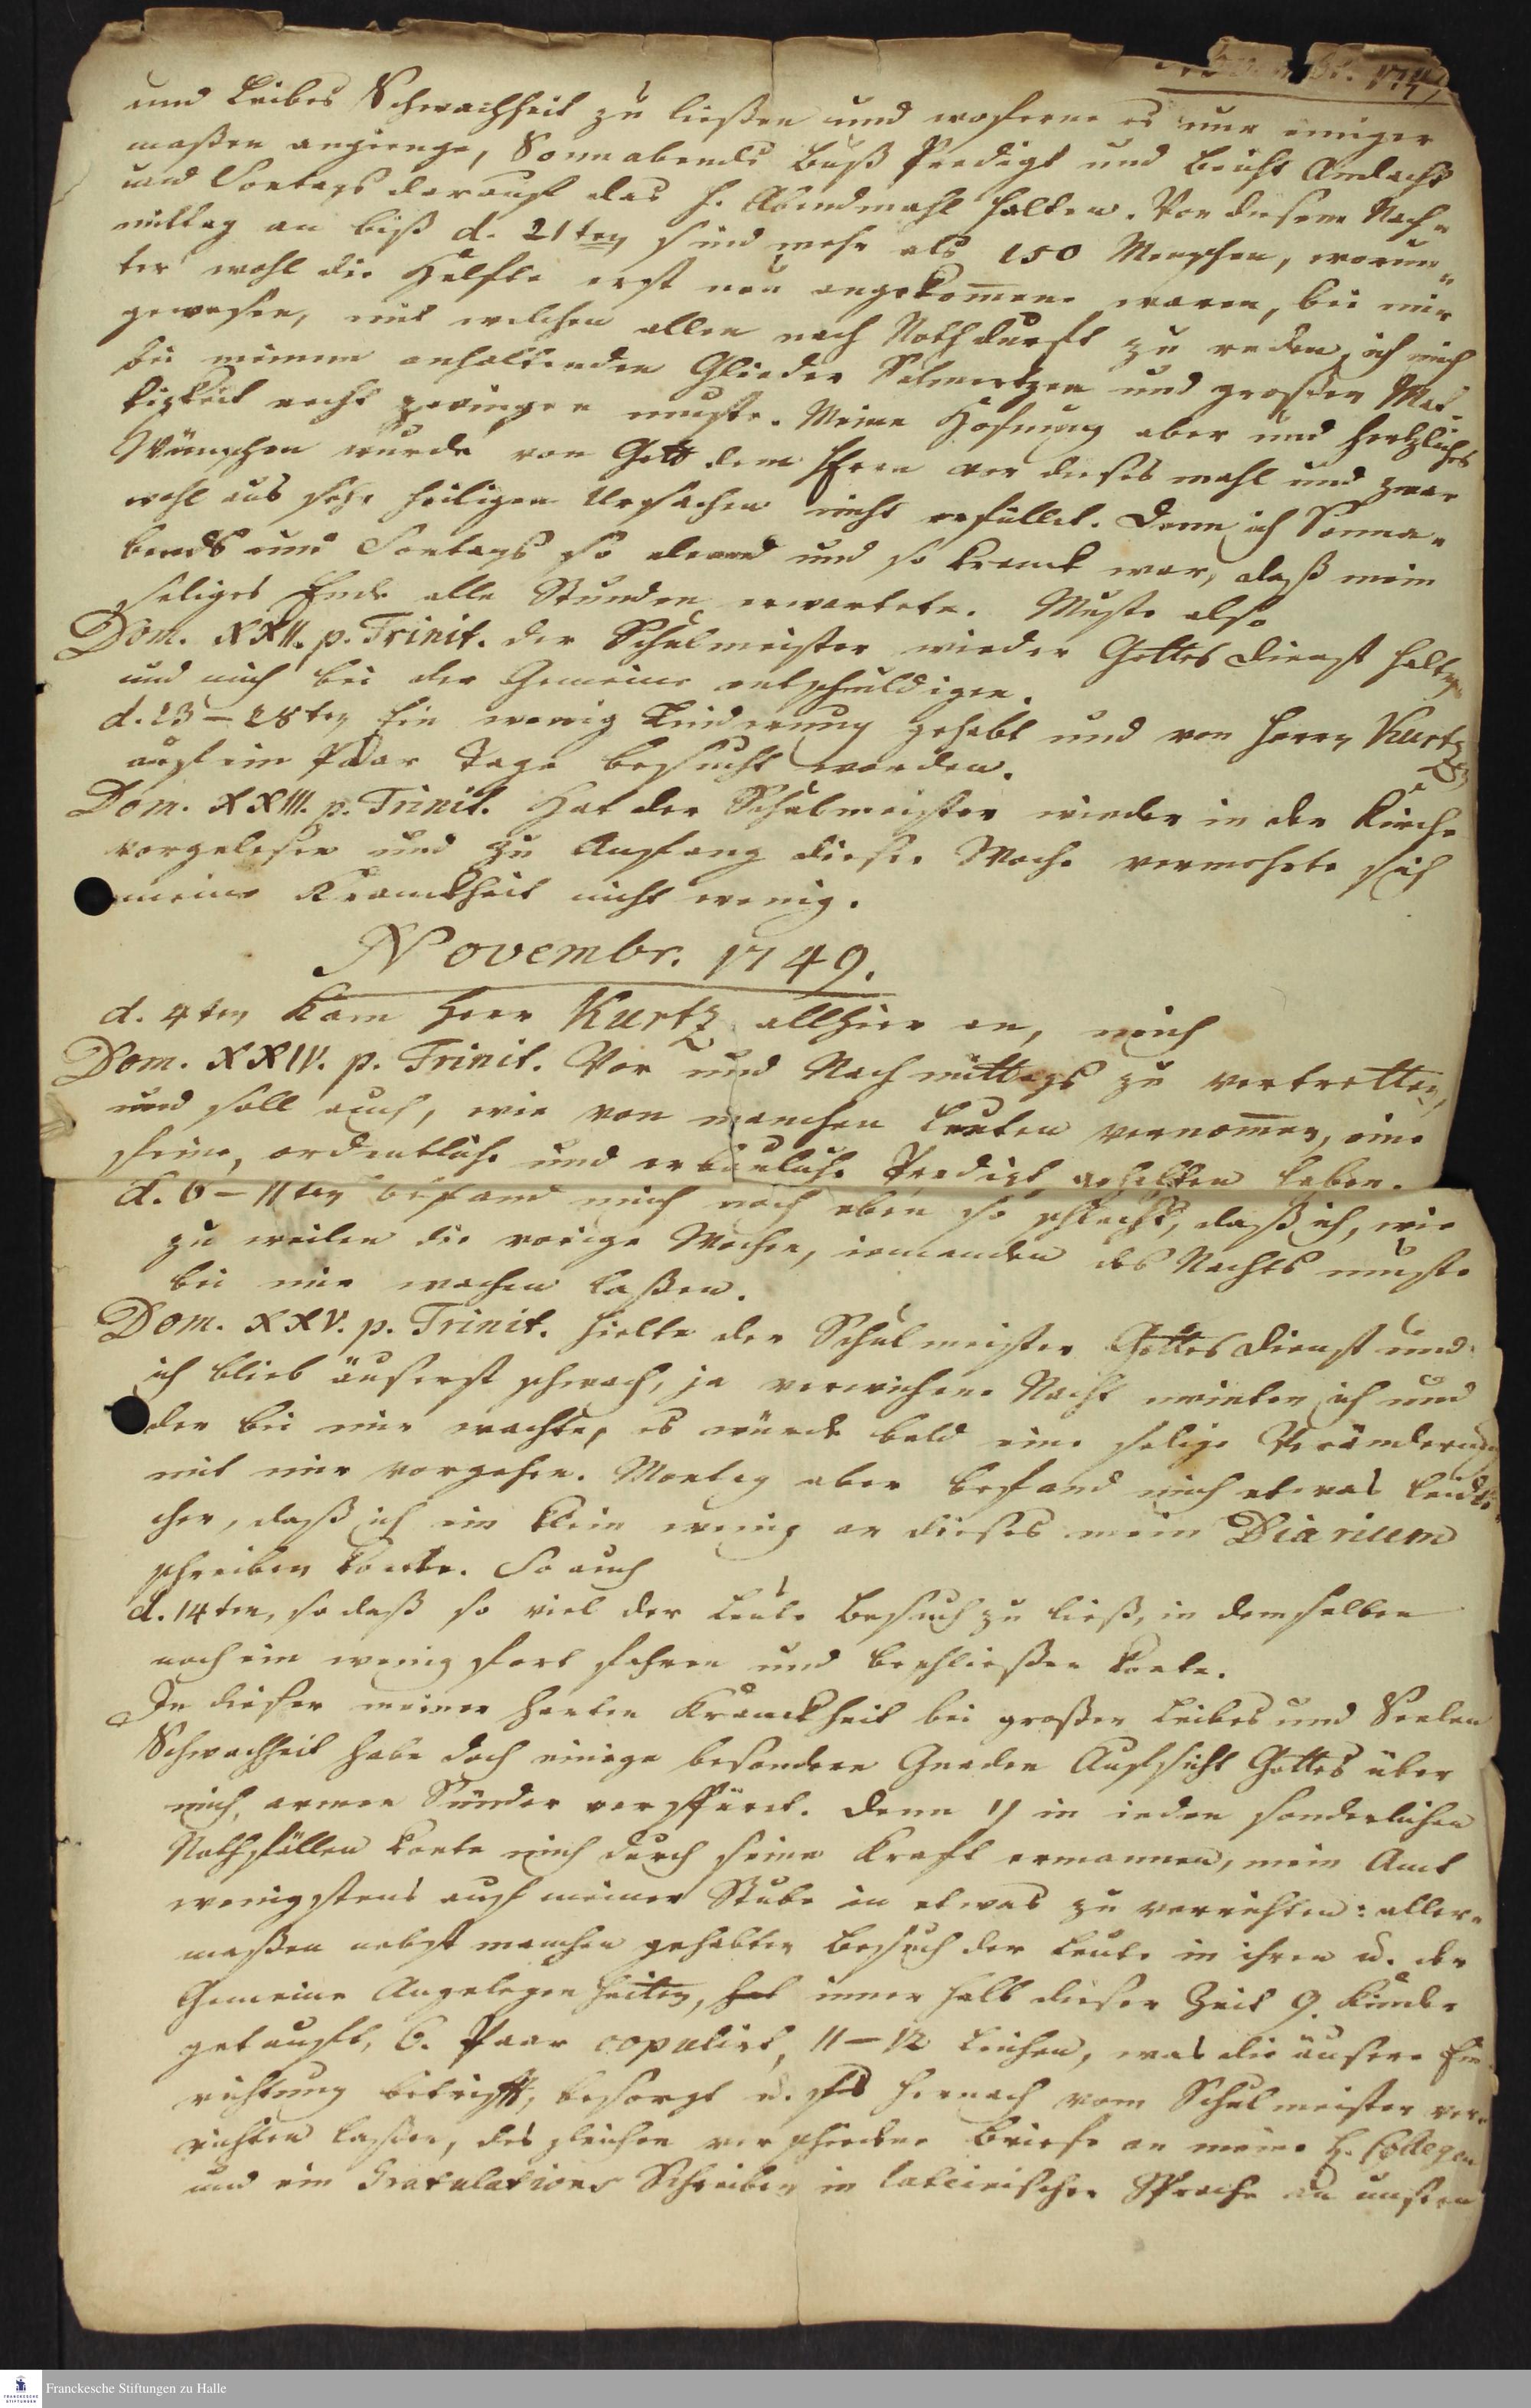 Novembr. 1749
und Leibes Schwachheit zu ließen und woferne es nur einiger
maßen angienge, Sonnabends Buß Predigt und Beicht Andacht
und Sontags darauf das H. Abendmahl halten. Von diesem Nach-
mittag an biß d. 21ten sind mehr als 150 Menschen, worun-
ter wohl die Helfte erst neu angekommene waren, bei mir
gewesen, mit welchen allen nach Nothdurft zu reden, ich mich
bei meinen anhaltenden Glieder Schmertzen und großer Mat-
tigkeit recht zwingen muste. Meine Hofnung aber und hertzliches
Wünschen wurde von Gott dem HErrn vor dieses mahl und zwar
wohl aus sehr heiligen Ursachen nicht erfüllet. Denn ich Sonna-
bends und Sontags so elend und so kranck war, daß mein
seliges Ende alle Stunden erwartete. Muste also
Dom. XXII. p. Trinit. der Schulmeister wieder Gottes Dienst halten
und mich bei der Gemeine entschuldigen.
d. 23 – 28ten Ein wenig Linderung gehabt und von Herrn Kurtz
auf ein Paar Tage besucht worden.
Dom. XXIII. p. Trinit. Hat der Schulmeister wieder in der Kirche
vorgelesen und zu Anfang dieser Woche vermehrte sich
meine Kranckheit nicht wenig.
Novembr. 1749.
d. 4ten Kam Herr Kurtz allhier an, mich
Dom. XXIV. p. Trinit. Vor und Nachmittags zu vertretten,
und soll auch, wie von manchen Leuten vernommen, eine
feine, ordentliche und erbauliche Predigt gehalten haben.
d. 6 – 11ten befand mich noch eben so schlecht, daß ich, wie
zu weilen die vorige Wochen, iemanden des Nachts muste
bei mir wachen laßen.
Dom. XXV. p. Trinit. hielte der Schulmeister Gottes Dienst und
ich blieb äuserst schwach, ja verwichene Nacht meinten ich und
der bei mir wachte, es würde bald eine selige Veränderung
mit mir vorgehen. Montag aber befand mich etwas leid-
cher, daß ich ein klein wenig an dieses mein Diarium
schreiben konte. So auch
d. 14ten, so daß so viel der Leute Besuch zu ließ, in demselben
noch ein wenig fort fahren und beschließen konte.
In dieser meiner harten Kranckheit bei großer Leibes und Seelen
Schwachheit habe doch einige besondere Gnaden Aufsicht Gottes über
mich armen Sünder verspüret. Denn 1) in ieden sonderlichen
Nothfällen konte mich durch seine Kraft ermannen, mein Amt
wenigstens auf meiner Stube in etwas zu verrichten: aller-
maßen nebst manchen gehabten Besuch der Leute in ihren u. der
Gemeine Angelegenheiten, hab inner halb dieser Zeit 9. Kinder
getauft, 6. Paar copulirt, 11 – 12 Leichen, was die äusere Ein-
richtung betrifft, besorgt u. hernach vom Schulmeister ver-
richten laßen, des gleichen verschiedene Briefe an meine H. Collegen
und ein Gratulations Schreiben in lateinischer Sprache an unsern
Franckesche Stiftungen zu Halle